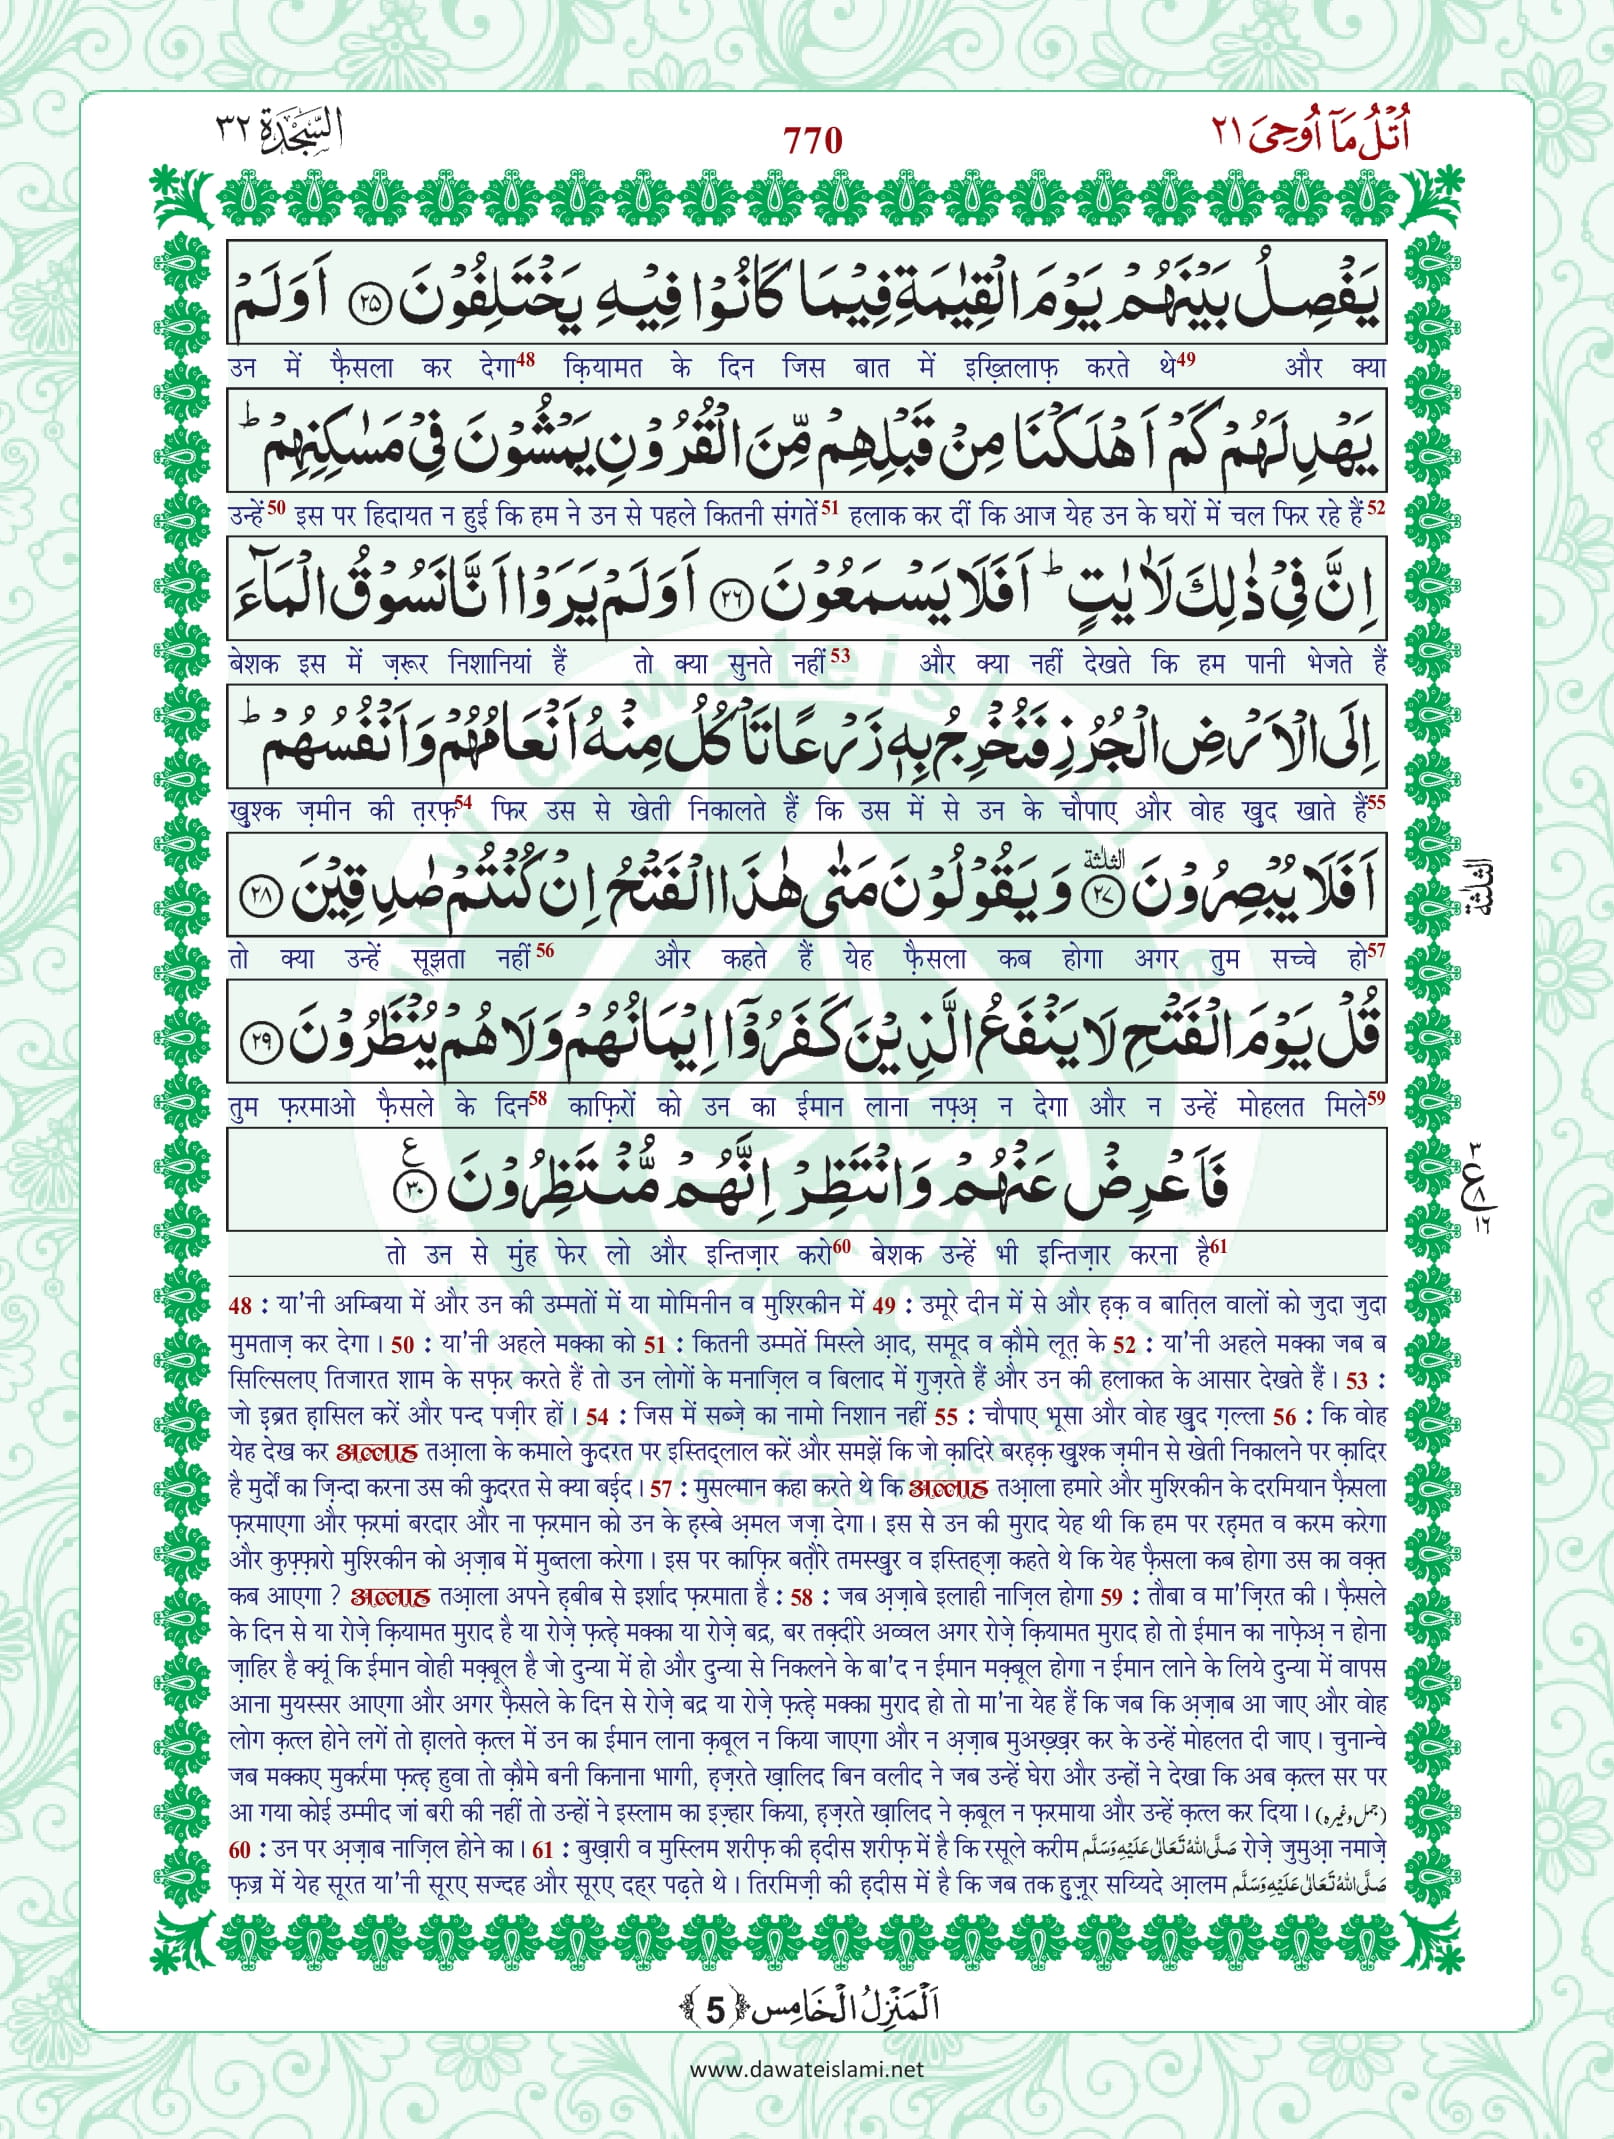 اُتْلُ مَاۤ اُوْحِیَ ٢١
770
السَّجْدَة ٣٢
یَفْصِلُ بَیْنَهُمْ یَوْمَ الْقِیٰمَةِ فِیْمَا كَانُوْا فِیْهِ یَخْتَلِفُوْنَ ﴿٢٥﴾ اَوَلَمْ
उन में फ़ैसला कर देगा48 क़ियामत के दिन जिस बात में इख़्तिलाफ़ करते थे49 और क्या
یَهْدِ لَهُمْ كَمْ اَهْلَكْنَا مِنْ قَبْلِهِمْ مِّنَ الْقُرُوْنِ یَمْشُوْنَ فِیْ مَسٰكِنِهِمْ ؕ
उन्हें50 इस पर हिदायत न हुई कि हम ने उन से पहले कितनी संगतें51 हलाक कर दीं कि आज येह उन के घरों में चल फिर रहे हैं52
اِنَّ فِیْ ذٰلِكَ لَاٰیٰتٍ ؕ اَفَلَا یَسْمَعُوْنَ ﴿٢٦﴾ اَوَلَمْ یَرَوْا اَنَّا نَسُوْقُ الْمَآءَ
बेशक इस में ज़रूर निशानियां हैं तो क्या सुनते नहीं53 और क्या नहीं देखते कि हम पानी भेजते हैं
اِلَى الْاَرْضِ الْجُرُزِ فَنُخْرِجُ بِهٖ زَرْعًا تَاْكُلُ مِنْهُ اَنْعَامُهُمْ وَ اَنْفُسُهُمْ ؕ
ख़ुश्क ज़मीन की त़रफ़54 फिर उस से खेती निकालते हैं कि उस में से उन के चौपाए और वोह ख़ुद खाते हैं55
اَفَلَا یُبْصِرُوْنَ ﴿٢٧﴾ الثلثة وَ یَقُوْلُوْنَ مَتٰى هٰذَا الْفَتْحُ اِنْ كُنْتُمْ صٰدِقِیْنَ ﴿٢٨﴾
الثلثة
तो क्या उन्हें सूझता नहीं56 और कहते हैं येह फ़ैसला कब होगा अगर तुम सच्चे हो57
قُلْ یَوْمَ الْفَتْحِ لَا یَنْفَعُ الَّذِیْنَ كَفَرُوْۤا اِیْمَانُهُمْ وَ لَا هُمْ یُنْظَرُوْنَ ﴿٢٩﴾
तुम फ़रमाओ फ़ैसले के दिन58 काफ़िरों को उन का ईमान लाना नफ़्अ़ न देगा और न उन्हें मोहलत मिले59
فَاَعْرِضْ عَنْهُمْ وَ انْتَظِرْ اِنَّهُمْ مُّنْتَظِرُوْنَ ﴿٣٠﴾ ع
٣ ع ٨ ١٦
तो उन से मुंह फेर लो और इन्तिज़ार करो60 बेशक उन्हें भी इन्तिज़ार करना है61
48 : या'नी अम्बिया में और उन की उम्मतों में या मोमिनीन व मुश्रिकीन में 49 : उमूरे दीन में से और ह़क़ व बात़िल वालों को जुदा जुदा
मुमताज़ कर देगा। 50 : या'नी अहले मक्का को 51 : कितनी उम्मतें मिस्ले आ़द, समूद व क़ौमे लूत़ के 52 : या'नी अहले मक्का जब ब
सिल्सिलए तिजारत शाम के सफ़र करते हैं तो उन लोगों के मनाज़िल व बिलाद में गुज़रते हैं और उन की हलाकत के आसार देखते हैं। 53 :
जो इ़ब्रत ह़ासिल करें और पन्द पज़ीर हों। 54 : जिस में सब्ज़े का नामो निशान नहीं 55 : चौपाए भूसा और वोह ख़ुद ग़ल्ला 56 : कि वोह
येह देख कर अल्लाह तआ़ला के कमाले क़ुदरत पर इस्तिद्लाल करें और समझें कि जो क़ादिरे बरह़क़ ख़ुश्क ज़मीन से खेती निकालने पर क़ादिर
है मुर्दों का ज़िन्दा करना उस की क़ुदरत से क्या बईद। 57 : मुसल्मान कहा करते थे कि अल्लाह तआ़ला हमारे और मुश्रिकीन के दरमियान फ़ैसला
फ़रमाएगा और फ़रमां बरदार और ना फ़रमान को उन के ह़स्बे अ़मल जज़ा देगा। इस से उन की मुराद येह थी कि हम पर रह़मत व करम करेगा
और कुफ़्फ़ारो मुश्रिकीन को अ़ज़ाब में मुब्तला करेगा। इस पर काफ़िर बत़ौरे तमस्ख़ुर व इस्तिह्ज़ा कहते थे कि येह फ़ैसला कब होगा उस का वक़्त
कब आएगा ? अल्लाह तआ़ला अपने ह़बीब से इर्शाद फ़रमाता है : 58 : जब अ़ज़ाबे इलाही नाज़िल होगा 59 : तौबा व मा'ज़िरत की। फ़ैसले
के दिन से या रोज़े क़ियामत मुराद है या रोज़े फ़त्ह़े मक्का या रोज़े बद्र, बर तक़्दीरे अव्वल अगर रोज़े क़ियामत मुराद हो तो ईमान का नाफ़ेअ़ न होना
ज़ाहिर है क्यूं कि ईमान वोही मक़्बूल है जो दुन्या में हो और दुन्या से निकलने के बा'द न ईमान मक़्बूल होगा न ईमान लाने के लिये दुन्या में वापस
आना मुयस्सर आएगा और अगर फ़ैसले के दिन से रोज़े बद्र या रोज़े फ़त्ह़े मक्का मुराद हो तो मा'ना येह हैं कि जब कि अ़ज़ाब आ जाए और वोह
लोग क़त्ल होने लगें तो ह़ालते क़त्ल में उन का ईमान लाना क़बूल न किया जाएगा और न अ़ज़ाब मुअख़्ख़र कर के उन्हें मोहलत दी जाए। चुनान्चे
जब मक्कए मुकर्रमा फ़त्ह़ हुवा तो क़ौमे बनी किनाना भागी, ह़ज़रते ख़ालिद बिन वलीद ने जब उन्हें घेरा और उन्हों ने देखा कि अब क़त्ल सर पर
आ गया कोई उम्मीद जां बरी की नहीं तो उन्हों ने इस्लाम का इज़्हार किया, ह़ज़रते ख़ालिद ने क़बूल न फ़रमाया और उन्हें क़त्ल कर दिया। (جمل وغیره)
60 : उन पर अ़ज़ाब नाज़िल होने का। 61 : बुख़ारी व मुस्लिम शरीफ़ की ह़दीस शरीफ़ में है कि रसूले करीम صَلَّى اللّٰهُ تَعَالٰى عَلَیْهِ وَسَلَّم रोज़े जुमुआ़ नमाज़े
फ़ज्र में येह सूरत या'नी सूरए सज्दह और सूरए दह्र पढ़ते थे। तिरमिज़ी की ह़दीस में है कि जब तक हुज़ूर सय्यिदे आ़लम صَلَّى اللّٰهُ تَعَالٰى عَلَیْهِ وَسَلَّم
اَلْمَنْزِلُ الْخَامِس ﴿5﴾
www.dawateislami.net